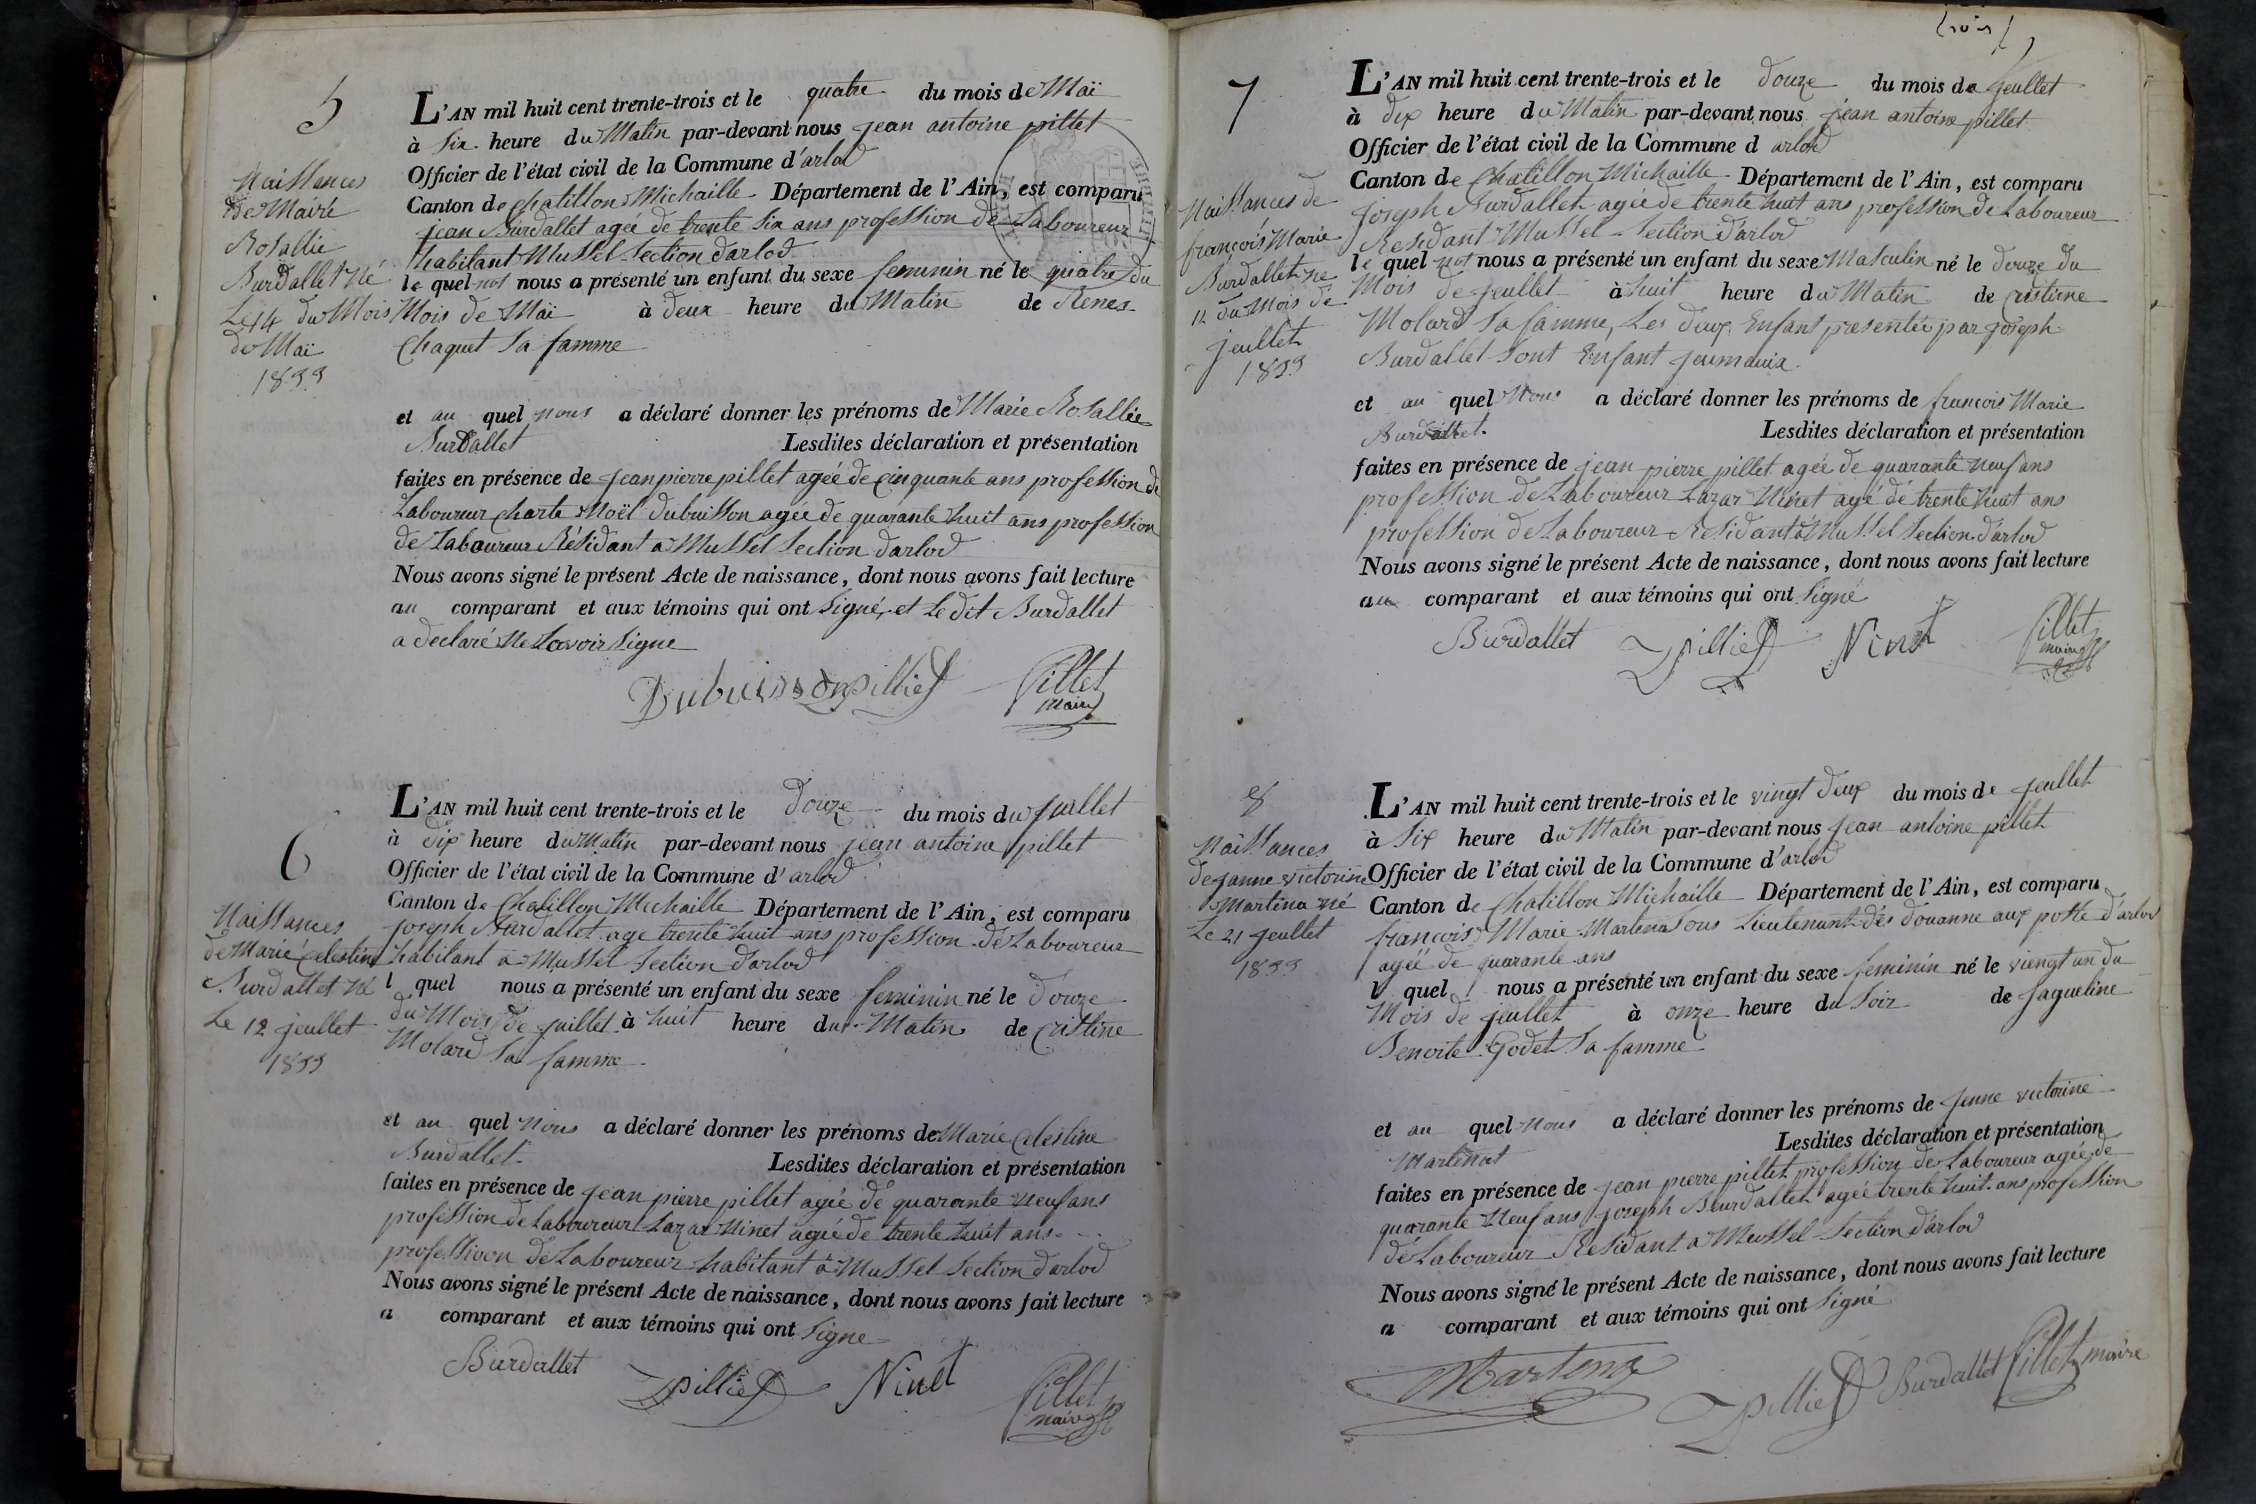 5
Naissances
de Marié
Rosallie
Burdallet né
Le 14 du Mois
de Maï
1833
L'AN mil huit cent trente-trois et le quatre du mois de Maï
à six heure du Matin par-devant nous jean antoine pillet
Officier de l'état civil de la Commune d'arlod
Canton de Chatillon Michaille Département de l'Ain, est comparu
jean Burdallet agée de trente six ans profession de Laboureur
habitant Mussel section d'arlod
le quel nos nous a présenté un enfant du sexe feminin né le quatre du
Mois de Maï à deux heure du Matin de Renes
Chaquet sa famme
et au quel nous a déclaré donner les prénoms de Marie Rosallie
Burdallet Lesdites déclaration et présentation
faites en présence de jean pierre pillet agée de Cinquante ans profession de
Laboureur Charle Noël Dubuisson agée de quarante huit ans profession
de Laboureur Résidant a Mussel section d'arlod
Nous avons signé le présent Acte de naissance, dont nous avons fait lecture
au comparant et aux témoins qui ont signé, et Le dit Burdallet
a declaré ne savoir signe
Dubuisson pilliet Pillet
maire
6
Naissances
de Marié Celestine
Burdallet né
Le 12 jeullet
1833
L'AN mil huit cent trente-trois et le douze du mois du juillet
à dix heure du Matin par-devant nous jean antoine pillet
Officier de l'état civil de la Commune d'arlod
Canton de Chatillon Michaille Département de l'Ain, est comparu
joseph Burdallet age trente huit ans profession de Laboureur
habitant a Mussel section d'arlod
l quel nous a présenté un enfant du sexe feminin né le douze
du Mois de juillet à huit heure du Matin de Cristine
Molard sa famme
et au quel nous a déclaré donner les prénoms de Marie Celestine
Burdallet Lesdites déclaration et présentation
faites en présence de jean pierre pillet agée de quarante neuf ans
profession de Laboureur Lazar Ninet agée de trente huit ans
profession de Laboureur habitant à Mussel section d'arlod
Nous avons signé le présent Acte de naissance, dont nous avons fait lecture
a comparant et aux témoins qui ont signe
Burdallet pilliet Ninet Pillet
maire
7
Naissances de
francois Marie
Burdallet ne
12 du Mois de
jeullet
1833
L'AN mil huit cent trente-trois et le douze du mois de jeullet
à dix heure du Matin par-devant nous jean antoine pillet
Officier de l'état civil de la Commune d arlod
Canton de Chatillon Michaille Département de l'Ain, est comparu
joseph Burdallet agée de trente huit ans profession de Laboureur
Residant Mussel section d'arlod
le quel nos nous a présenté un enfant du sexe Masculin né le douze du
Mois de jeullet à huit heure du Matin de Cristine
Molard sa famme, Les deux Enfant presentée par joseph
Burdallet sont Enfant jeumauix
et au quel nous a déclaré donner les prénoms de francois Marie
Burdallet Lesdites déclaration et présentation
faites en présence de jean pierre pillet agée de quarante neuf ans
profession de Laboureur Lazar Ninet agé de trente huit ans
profession de Laboureur Résidant a Mussel section d'arlod
Nous avons signé le présent Acte de naissance, dont nous avons fait lecture
au comparant et aux témoins qui ont signé
Burdallet pilliet Ninet Pillet
maire
8
Naissances
de janne victorine
Martina né
Le 21 jeullet
1833
L'AN mil huit cent trente-trois et le vingt deux du mois de jeullet
à six heure du Matin par-devant nous jean antoine pillet
Officier de l'état civil de la Commune d'arlod
Canton de Chatillon Michaille Département de l'Ain, est comparu
francois Marie Martina sous Lieutenant des douanne aux poste d'arlod
agée de quarante ans
l quel nous a présenté un enfant du sexe feminin né le viengt un du
Mois de jeullet à onze heure du soir de jaqueline
Benoite Godet sa famme
et au quel nous a déclaré donner les prénoms de jenne victorine
Martenat Lesdites déclaration et présentation
faites en présence de jean pierre pillet profession de Laboureur agée de
quarante neuf ans joseph Burdallet agée trente huit ans profession
de Laboureur Residant a Mussel section d'arlod
Nous avons signé le présent Acte de naissance, dont nous avons fait lecture
a comparant et aux témoins qui ont signé
pilliet Burdallet Pillet maire